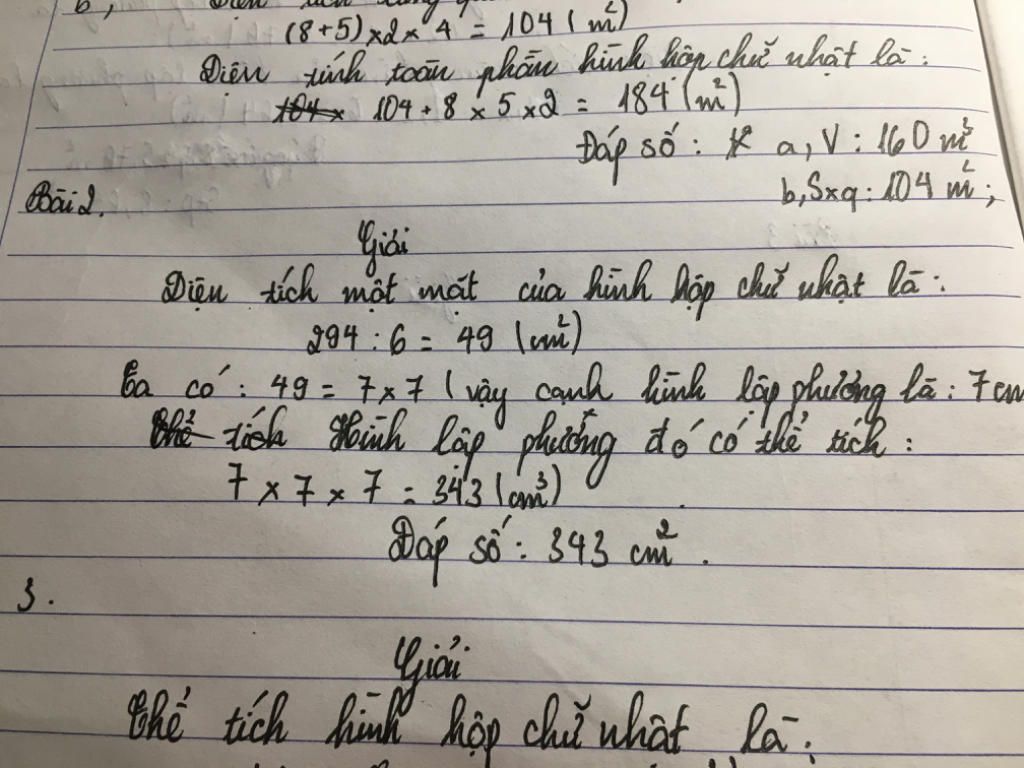 b, Diện tích
(8+5)×2×4 = 104 (m²)
Diện tính toàn phần hình hộp chữ nhật là:
104× 104 + 8 × 5 × 2 = 184 (m²)
Đáp số: a, V: 160 m³
b, Sxq: 104 m²;
Bài 2.
Giải
Diện tích một mặt của hình hộp chữ nhật là:
294 : 6 = 49 (cm²)
Ta có: 49 = 7 × 7 (vậy cạnh hình lập phương là: 7 cm
Thể tích Hình lập phương đó có thể tích:
7 × 7 × 7 = 343 (cm³)
Đáp số: 343 cm².
3.
Giải
Thể tích hình hộp chữ nhật là: